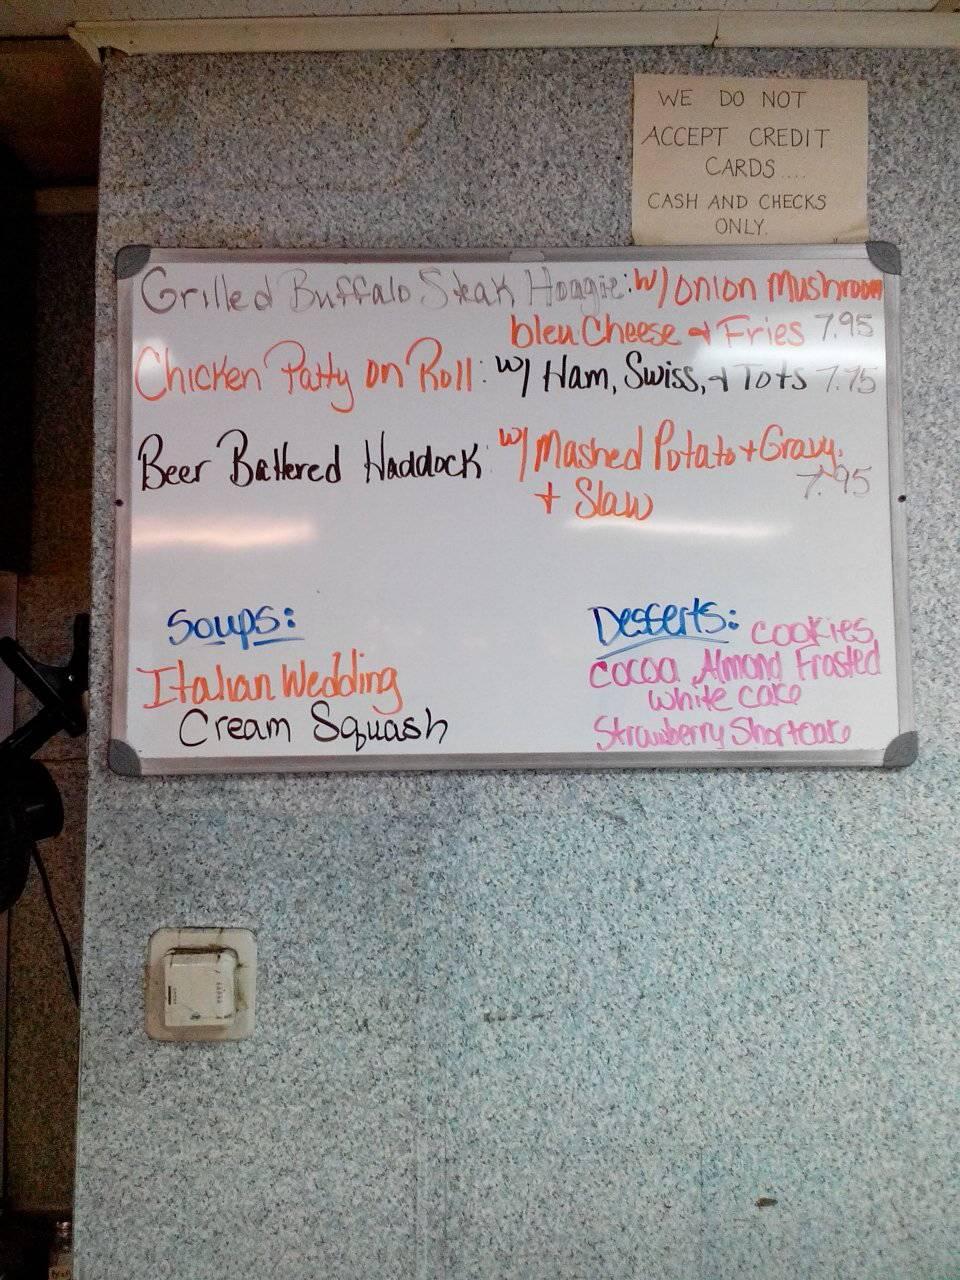 WE DO NOT
ACCEPT CREDIT
CARDS....
CASH AND CHECKS
ONLY.
Grilled Buffalo Steak Hoagie: w/ onion Mushroom
bleu Cheese + Fries 7.95
Chicken Patty on Roll: w/ Ham, Swiss, + Tots 7.75
Beer Battered Haddock: w/ Mashed Potato + Gravy,
+ Slaw 7.95
Soups:
Italian Wedding
Cream Squash
Desserts: cookies,
cocoa Almond Frosted
white cake
Strawberry Shortcake